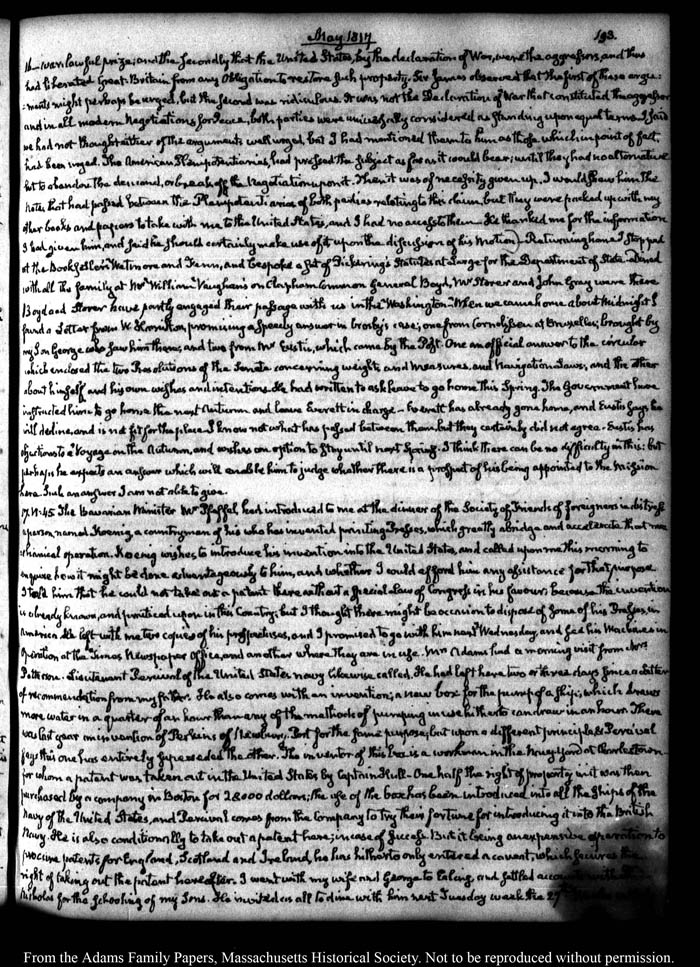 May 1817
193.
16 — war lawful prize; and the Secondly that the United States, by the declaration of War, were the aggressors, and thus
had liberated Great-Britain from any Obligation to restore such property. Sir James observed that the first of these argu-
-ments might perhaps be urged, but the second was ridiculous. It was not the Declaration of War that constituted the aggressor
and in all modern Negotiations for Peace, both parties were universally considered as standing upon equal terms. I said
we had not thought either of the arguments well urged, but I had mentioned them to him as those which in point of fact
had been urged. The American Plenipotentiaries, had pressed the subject as far as it would bear; until they had no alternative
but to abandon the demand, or break off the Negotiation upon it. Then it was of necessity given up. I would shew him the
notes that had passed between the Plenipotentiaries of both parties relating to this claim, but they were packed up with my
other books and papers to take with me to the United States, and I had no access to them — He thanked me for the information
I had given him, and said he should certainly make use of it upon the discussion of his Motion — Returning home I stopped
at the Booksellers Wetmore and Fenn, and bespoke a set of Pickering's Statutes at Large for the Department of State. Dined
with all the family at Mr William Vaughan's on Clapham Common General Boyd, Mr Storer and John Gray were there
Boyd and Storer have partly engaged their passage with us in the Washington. When we came home about midnight I
found a Letter from W. Hamilton promising a speedy answer in Crosby's case; one from Cornelissen at Bruxelles; brought by
my Son George who saw him there; and two from Mr Eustis, which came by the Post. One an official answer to the circular
which enclosed the two Resolutions of the Senate concerning weights and Measures, and Navigation Laws, and the other
about himself and his own wishes and intentions. He had written to ask leave to go home this Spring. The Government have
instructed him to go home the next Autumn and leave Everett in charge — Everett has already gone home, and Eustis says he
will decline, and is not fit for the place. I know not what has passed between them but they certainly did not agree. Eustis has
objections to a Voyage in the Autumn, and wishes an option to stay until next Spring. I think there can be no difficulty in this: but
perhaps he expects an answer which will enable him to judge whether there is a prospect of his being appointed to the mission
here. Such an answer I am not able to give.
17. VI:45 The Bavarian Minister Mr Pfeffel had introduced to me at the dinner of the Society of Friends of Foreigners in distress
a person, named Koenig, a countryman of his who has invented printing Presses, which greatly abridge and accelerate that me-
-chanical operation. Koenig wishes to introduce his invention into the United States, and called upon me this morning to
enquire how it might be done advantageously to him, and whether I could afford him any assistance for that purpose
I told him that he could not take out a patent there without a special Law of Congress in his favour; because the invention
is already known, and practiced upon in this Country; but I thought there might be occasion to dispose of some of his Presses, in
America. He left with me two copies of his prospectuses, and I promised to go with him next Wednesday, and see his Machines in
operation at the Times Newspaper Office, and another where they are in use. Mrs Adams had a morning visit from Mrs
Patterson. Lieutenant Percival of the United States navy likewise called. He had left here two or three days since a Letter
of recommendation from my father. He also comes with an invention; a new box for the pump of a ship; which draws
more water in a quarter of an hour than any of the methods of pumping in use hitherto can draw in an hour. There
was last year an invention of Perkins of Newbury-Port for the same purpose; but upon a different principle & Percival
says this one has entirely superseded the other. The inventor of this box is a workman in the Navy-Yard at Charlestown
for whom a patent was taken out in the United States by Captain Hull. One half the right of property in it was then
purchased by a company in Boston for 28000 dollars; the use of the box has been introduced into all the ships of the
Navy of the United States, and Percival comes from the Company to try their fortune for introducing it into the British
Navy. He is also conditionally to take out a patent here; in case of success. But it being an expensive operation to
procure patents for England, Scotland and Ireland, he has hitherto only entered a caveat, which secures the
right of taking out the patent hereafter. I went with my wife and George to Ealing, and settled accounts with
Nicholas for the schooling of my Sons. He invited us all to dine with him next Tuesday week the 27th
From the Adams Family Papers, Massachusetts Historical Society. Not to be reproduced without permission.